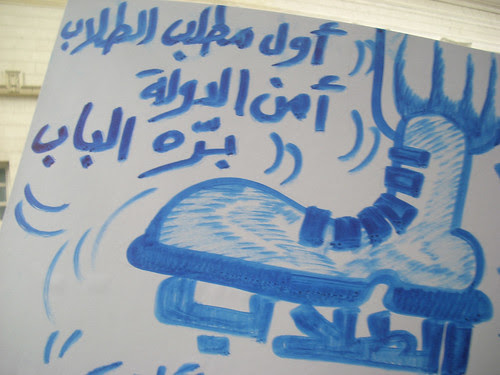 أول مطلب الطلاب
أمن الدولة
بره الباب
الطلاب